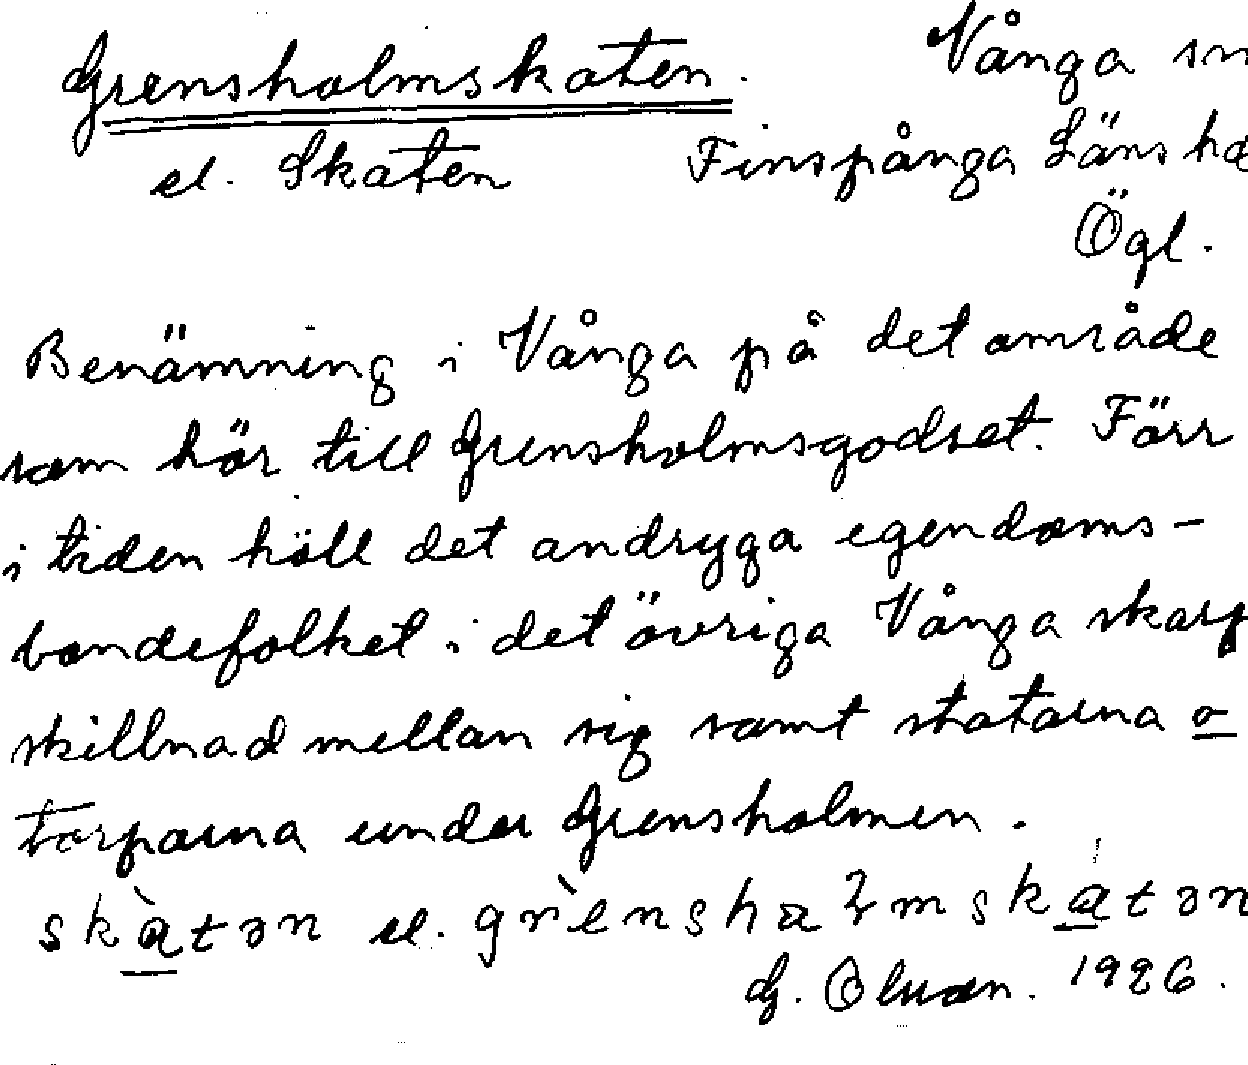 Grensholmskaten.
Vånga sn
el. Skaten
Finspånga Läns hd
Ögl.
Benämning i Vånga på det område
som hör till Grensholmsgodset. Förr
i tiden höll det andryga egendoms-
bondefolket i det övriga Vånga skarp
skillnad mellan sig samt statarna o
torparna under Grensholmen.
skàtən el. grènshaɬmskatən
G. Olson. 1926.